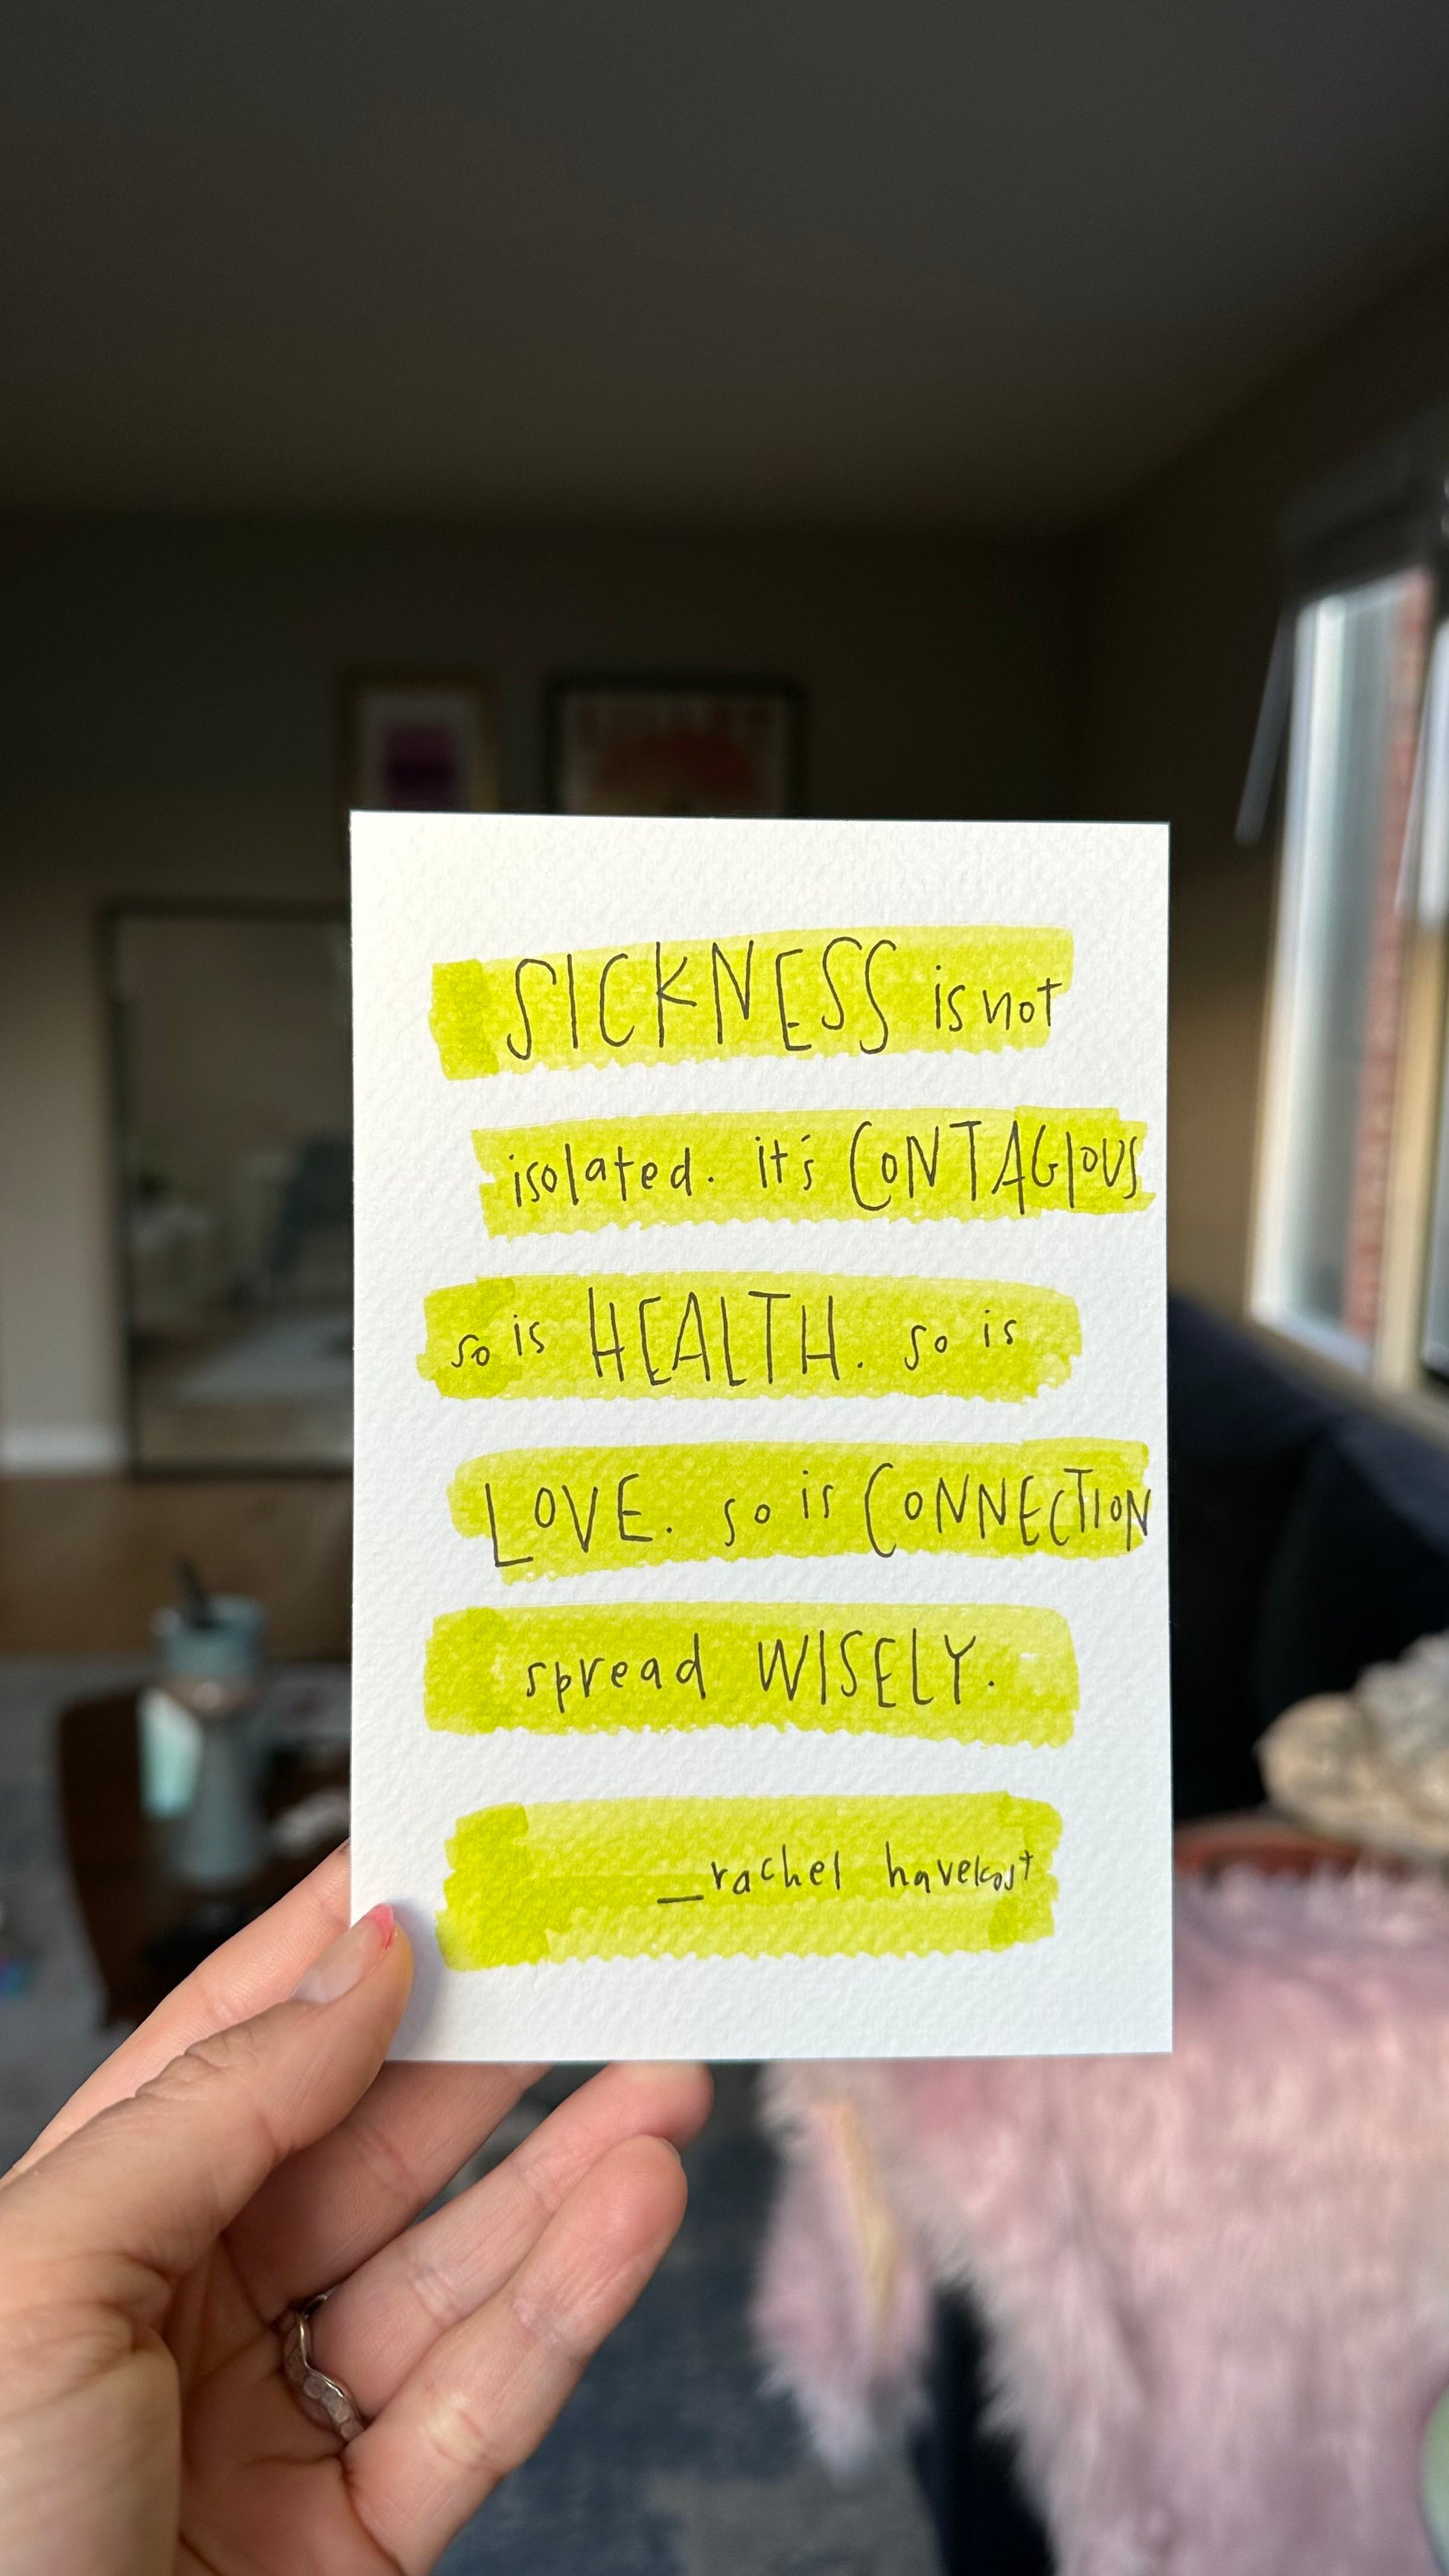 SICKNESS is not
isolated. it's CONTAGIOUS
so is HEALTH. so is
LOVE. so is CONNECTION
spread WISELY.
_rachel havekost